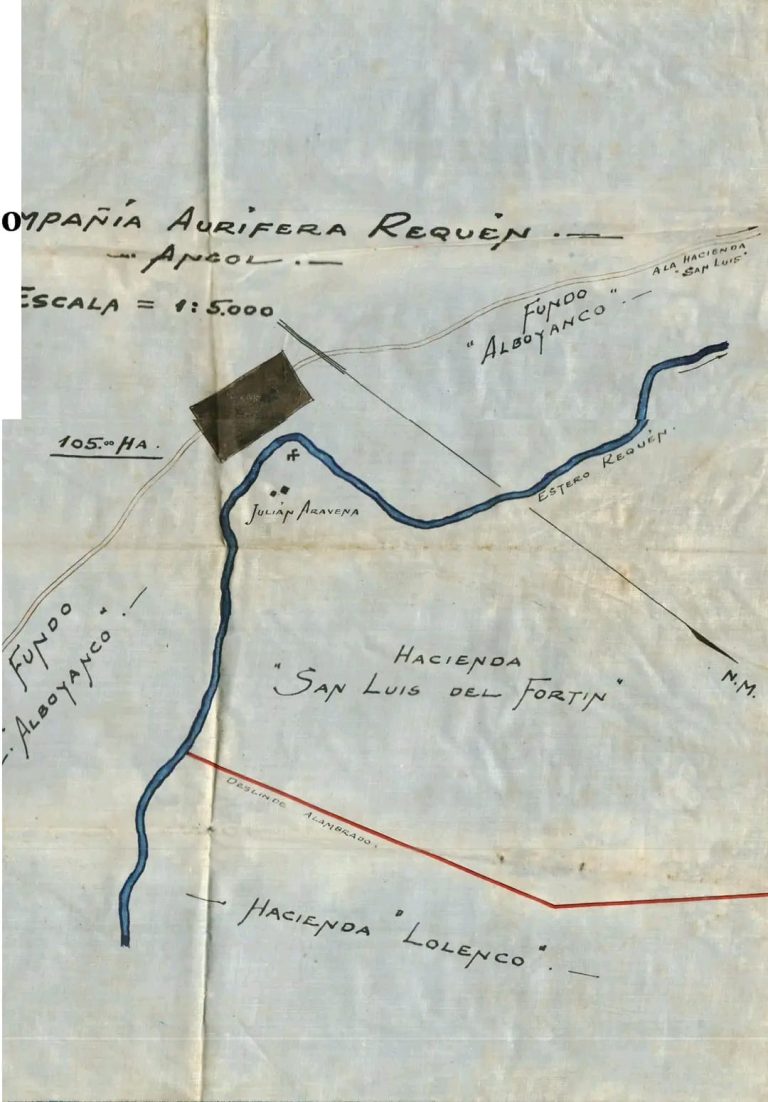 OMPAÑÍA AURÍFERA REQUÉN.—
— ANGOL.—
ESCALA = 1:5.000
A LA HACIENDA
"SAN LUIS"
FUNDO
"ALBOYANCO".—
105.00 HA.
ESTERO REQUÉN.
JULIÁN ARAVENA
FUNDO
—."ALBOYANCO".—
HACIENDA
"SAN LUIS DEL FORTIN"
N.M.
DESLINDE ALAMBRADO.
— HACIENDA "LOLENCO".—